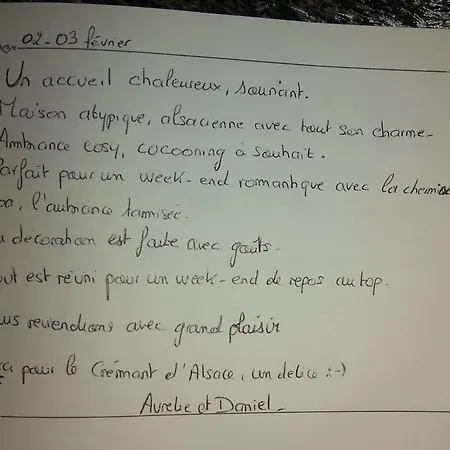 02-03 février
Un accueil chaleureux, souriant.
Maison atypique, alsacienne avec tout son charme-
Ambiance cosy, cocooning à souhait.
Parfait pour un week-end romantique avec la cheminée
l'ambiance tamisée.
décoration est faite avec goûts.
out est réuni pour un week-end de repos au top.
us reviendrons avec grand plaisir
pour le Crémant d'Alsace, un délice :-)
Aurelie et Daniel-